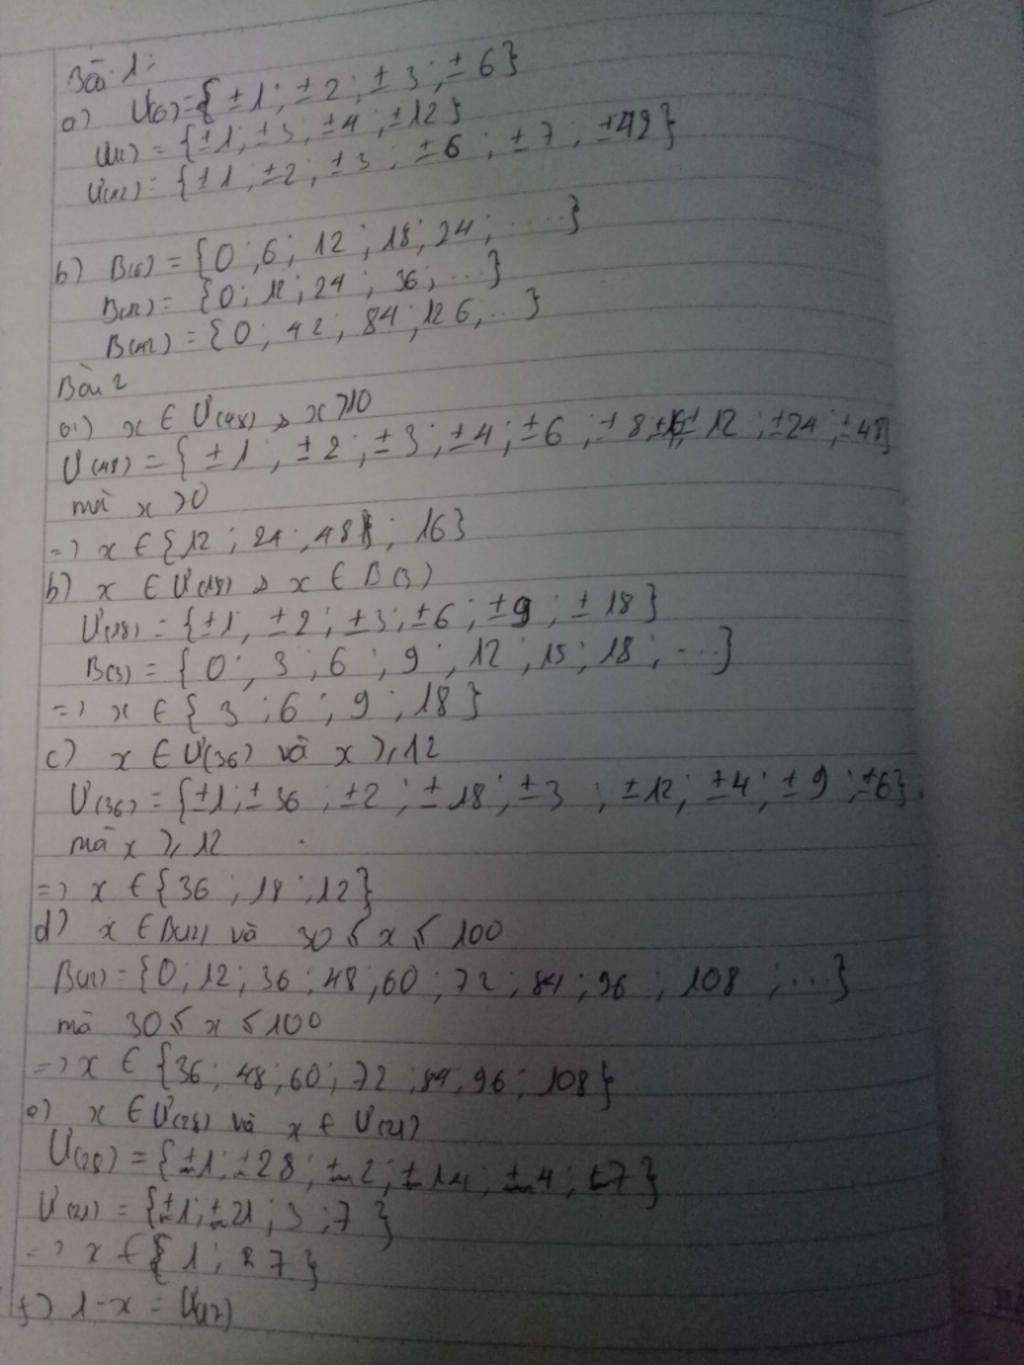 Bài 1:
a) Ư(6)={±1; ±2; ±3; ±6}
Ư(12) = {±1; ±3; ±4; ±12}
Ư(42) = {±1; ±2; ±3; ±6; ±7; ±42}
b) B(6) = {0; 6; 12; 18; 24; .....}
B(12) = {0; 12; 24; 36; ...}
B(42) = {0; 42; 84; 126; ..}
Bài 2
a) x ∈ Ư(48) x > 10
Ư(48) = {±1; ±2; ±3; ±4; ±6; ±8; ±16; ±12; ±24; ±48}
mà x > 0
=> x ∈ {12; 24; 48; 16}
b) x ∈ Ư(18) x ∈ B(3)
Ư(18) = {±1; ±2; ±3; ±6; ±9; ±18}
B(3) = {0; 3; 6; 9; 12; 15; 18; ...}
=> x ∈ {3; 6; 9; 18}
c) x ∈ Ư(36) và x ⩾ 12
Ư(36) = {±1; ±36; ±2; ±18; ±3; ±12; ±4; ±9; ±6}.
mà x ⩾ 12
=> x ∈ {36; 18; 12}
d) x ∈ B(12) và 30 ⩽ x ⩽ 100
B(12) = {0; 12; 36; 48; 60; 72; 84; 96; 108; ...}
mà 30 ⩽ x ⩽ 100
=> x ∈ {36; 48; 60; 72; 84; 96; 108}
e) x ∈ Ư(28) và x ∈ Ư(21)
Ư(28) = {±1; ±28; ±2; ±14; ±4; ±7}
Ư(21) = {±1; ±21; 3; 7}
=> x ∈ {1; 7}
f) 1-x = Ư(17)